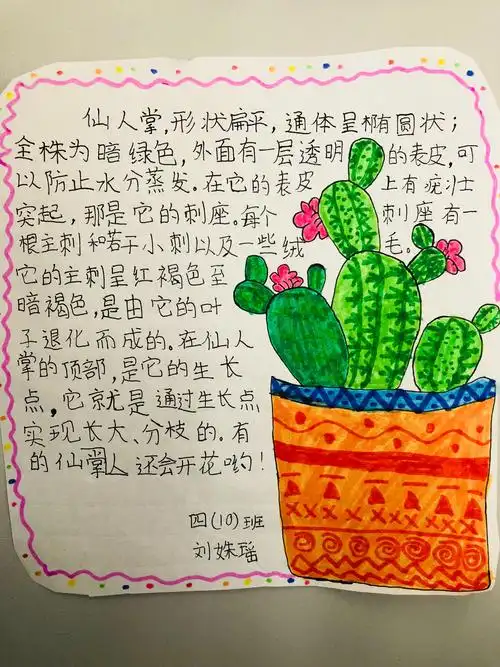 仙人掌,形状扁平,通体呈椭圆状;
全株为暗绿色,外面有一层透明的表皮,可
以防止水分蒸发。在它的表皮上有疣壮
突起,那是它的刺座。每个刺座有一
根主刺和若干小刺以及一些绒毛。
它的主刺呈红褐色至
暗褐色,是由它的叶
子退化而成的。在仙人
掌的顶部,是它的生长
点,它就是通过生长点
实现长大、分枝的。有
的仙掌人还会开花哟!
四(10)班
刘姝瑶